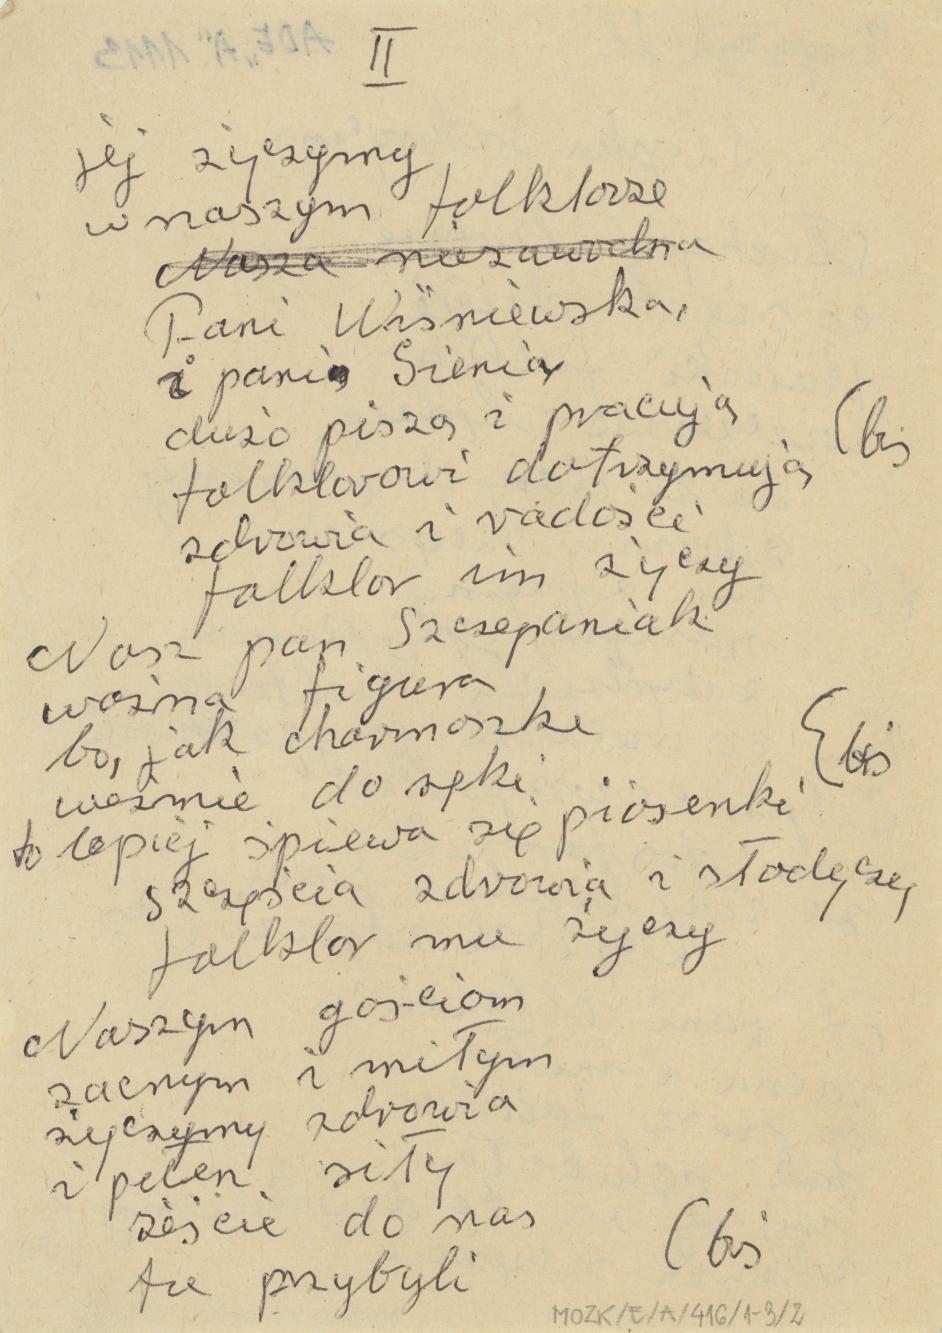 II
jej życzymy
w naszym folklorze
Nasza niezawodna
Pani Wiśniewska,
i pania Sienia
dużo piszą i pracują (bis
folklorowi dotrzymują
zdrowia i radości
folklor im życzy
Nasz pan Szczepaniak
ważna figura
bo, jak charmoszke
weźmie do ręki {bis
to lepiej śpiewa się piosenki
szczęścia zdrowia i słodyczy
folklor mu życzy
Naszym gościom
zacnym i miłym
życzymy zdrowia
i pełen siły
żeście do nas
tu przybyli (bis
MOZK/E/A/416/1-3/2